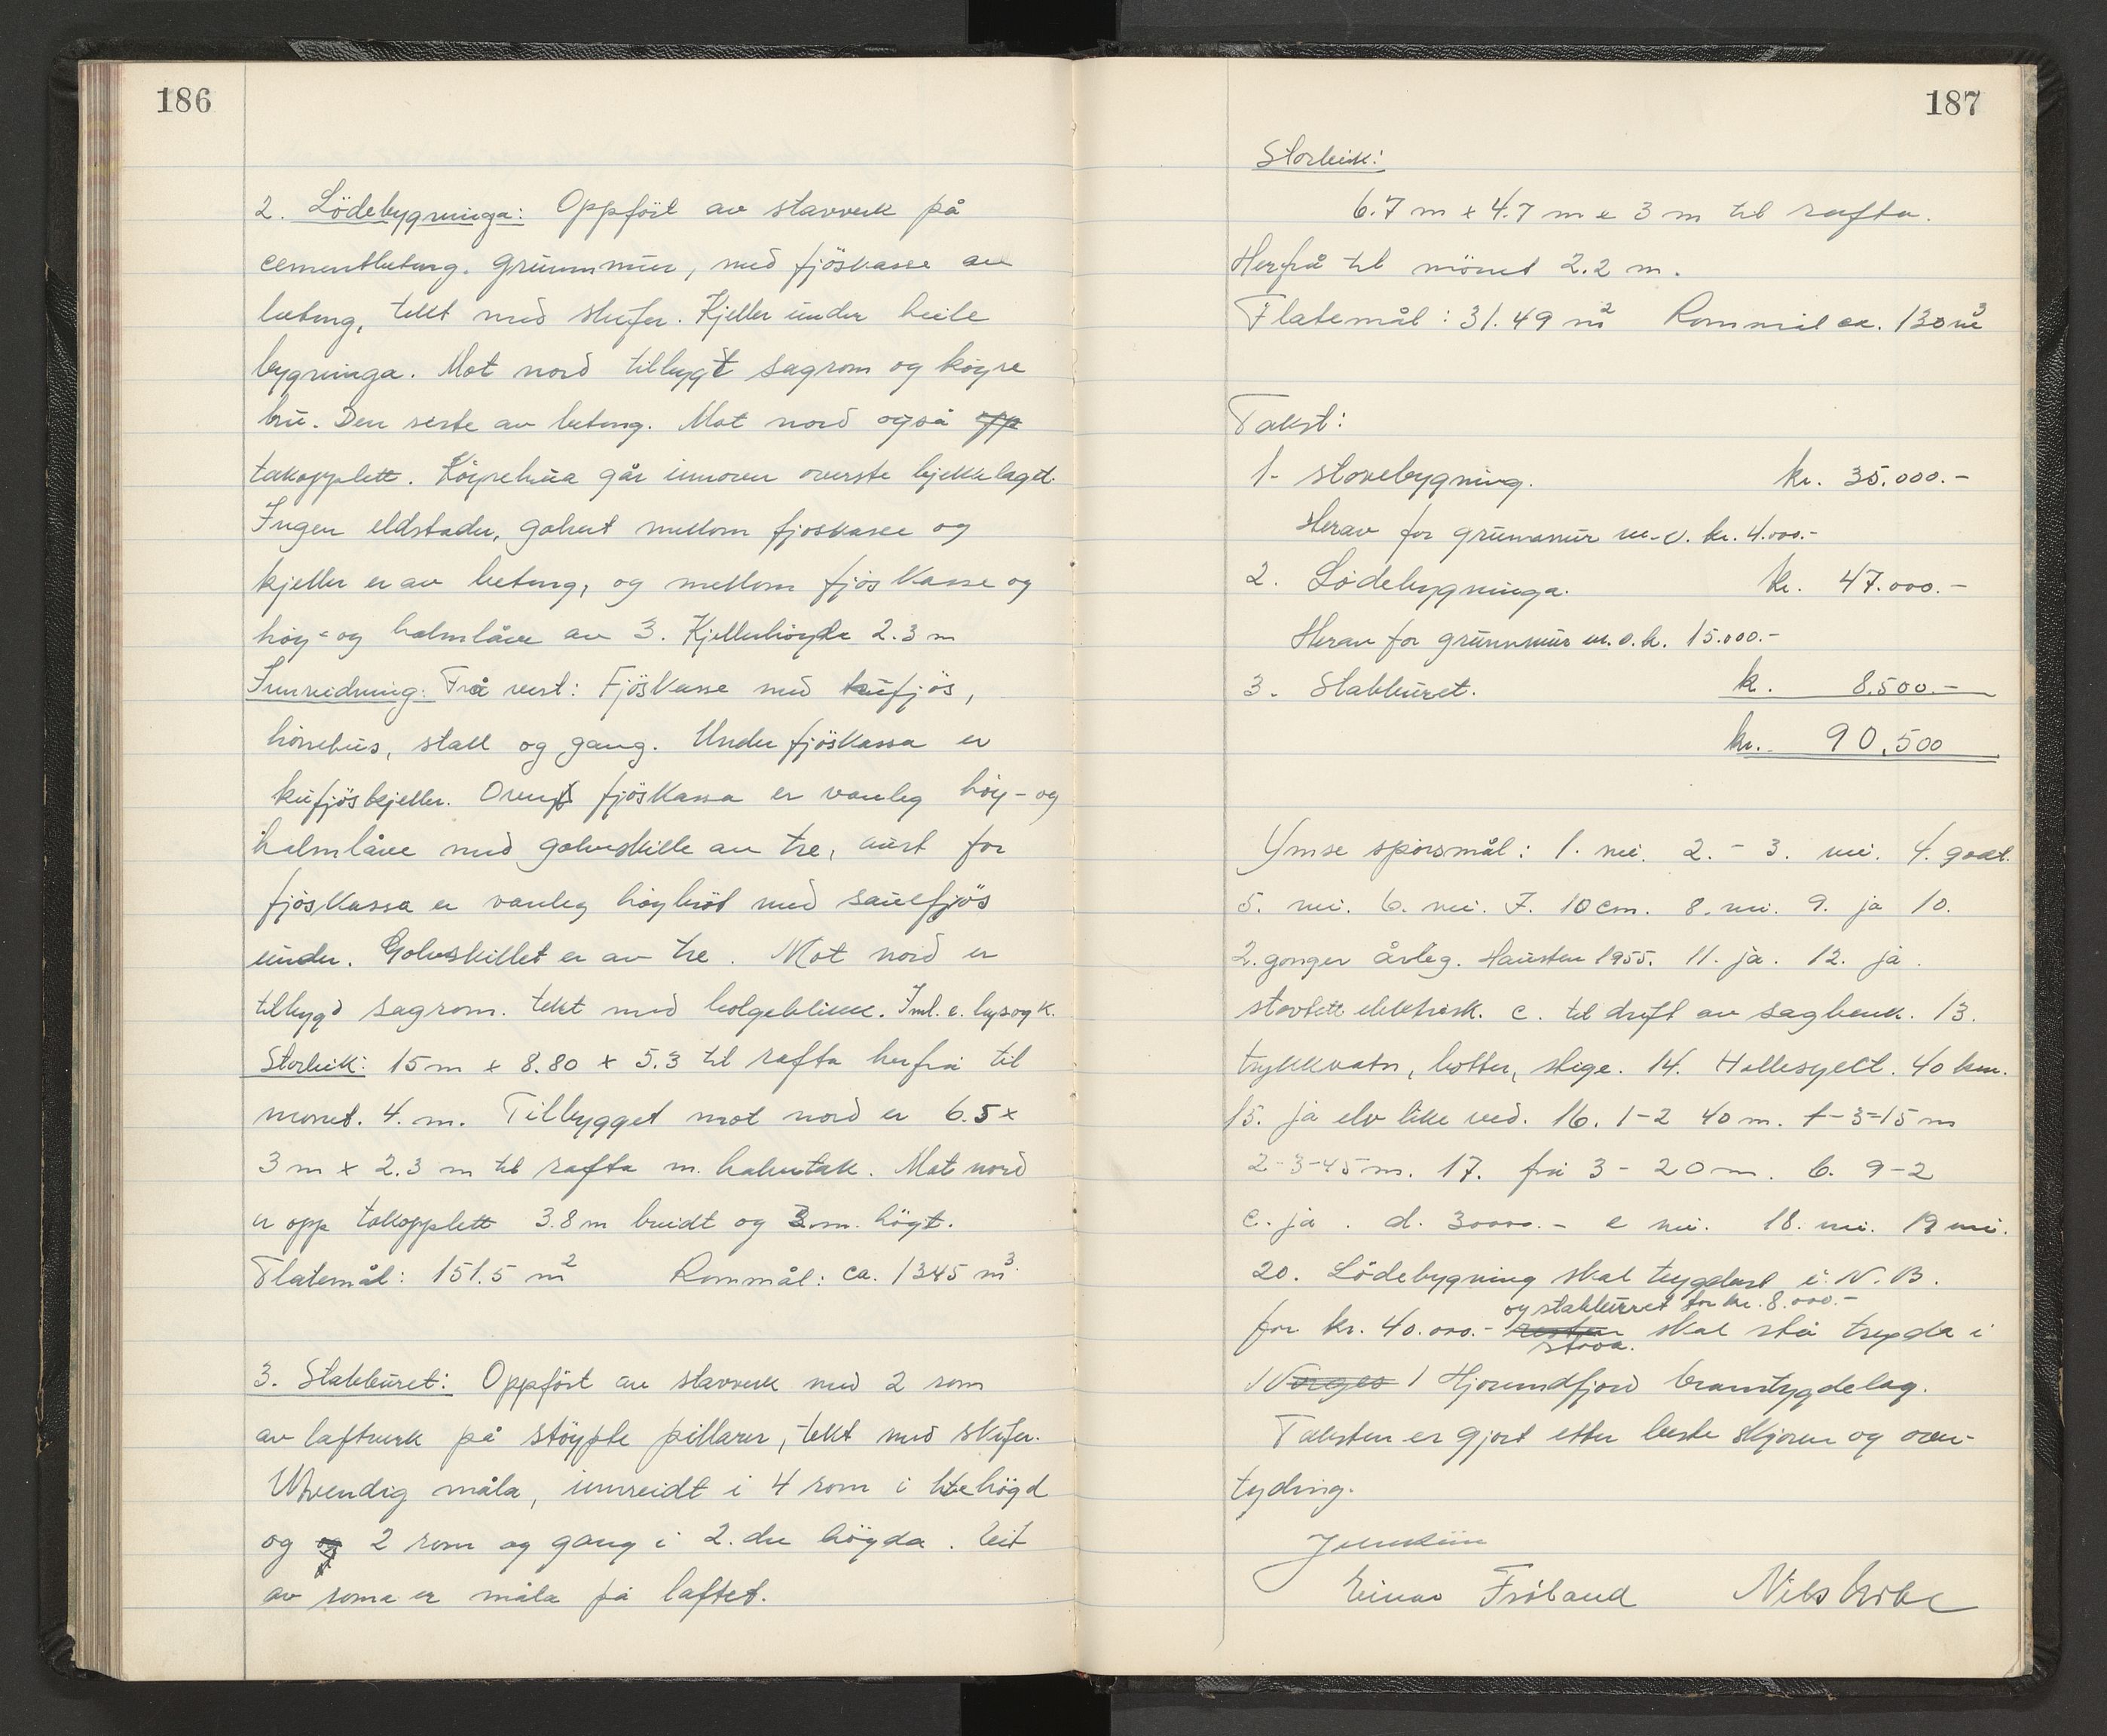 186
2. Lödebygninga: Oppfört av stavverk på
cementbetong. grunnmur, med fjöskasse av
betong, tekt med skifer. Kjeller under heile
bygninga. Mot nord tilbygt sagrom og köyre
bru. Den siste av betong. Mot nord også opp
takopplett. Köyrebrua går innover överste bjelkelaget.
Ingen eldstader, golvet mellom fjöskasse og
kjeller er av betong, og mellom fjöskasse og
höy- og halmlåve av 3. Kjellerhöyde 2.3 m
Innreidning: Frå vest: Fjöskasse med kufjös,
hönehus, stall og gang. Under fjöskassa er
kufjöskjeller. Over fjöskassa er vanleg höy- og
halmlåve med golvskille av tre, aust for
fjöskassa er vanleg höy med sauefjös
under. Golvskillet er av tre. Mot nord er
tilbygd sagrom. tekt med bolgeblikk. Inl. e. lys og k.
Storleik: 15 m x 8.80 x 5.3 til rafta herfrå til
mönet. 4. m. Tilbygget mot nord er 6.5 x
3 m x 2.3 m til rafta m. halvtak. Mot nord
er opp takopplett 3.8 m breidt og 3. m. högt.
Flatemål: 151.5 m² Rommål: ca. 1345 m³.
3. Stabburet: Oppfört av stavverk med 2 rom
av laftverk på stöypte pillarer, tekt med skifer.
Utvendig måla, innreidt i 4 rom i 1ste högd
og og 2 rom og gang i 2. dre högda. Eit
av roma er måla på laftet.
187
Storleik:
6.7 m x 4.7 m x 3 m til rafta.
Herfrå til mönet 2.2 m.
Flatemål: 31.49 m² Rommål ca. 130 m³
Takst:
1. stovebygning. kr. 35.000.-
Herav for grunnmur m.v. kr. 4.000.-
2. Lödebygninga. kr. 47.000.-
Herav for grunnmur m.v. k. 15.000.-
3. Stabburet. k. 8.500.-
kr. 90.500
Ymse spörsmål: 1. nei. 2. - 3. nei. 4. godt.
5. nei. 6. nei. 7. 10 cm. 8. nei. 9. ja 10.
2. gonger årleg. Hausten 1955. 11. ja. 12. ja.
elektrisk. c. til drift av sagbenk. 13.
trykkvatn, botter, stige. 14. Hellesylt. 40 km.
15. ja elv like ved. 16. 1-2 40 m. 1-3=15 m
2-3-45 m. 17. frå 3 - 20 m. b. 9-2
c. ja. d. 30000.- e nei. 18. nei. 19 nei.
20. Lödebygning skal trygdast i N. B.
og stabburet for kr. 8.000.-
for kr. 40.000.- restan skal stå trygda i
stova.
Norges 1 Hjorundfjord branntrygdelag.
Taksten er gjort etter beste skjönn og over-
tyding.
Einar Fröland Nils